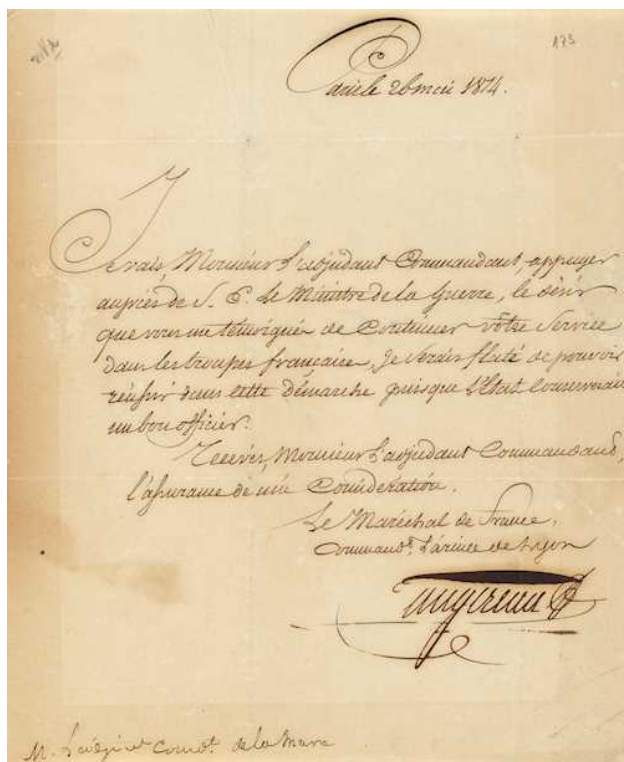 173
Paris le 26 mai 1814.
Je vais, Monsieur L'adjudant Commandant, appuyer
auprès de S. E. Le Ministre de la Guerre, le désir
que vous me témoignés de Continuer votre Service
dans les troupes françaises, je serais flaté de pouvoir
réussir dans cette démarche puisque L'Etat Conserverait
un bon officier.
Recevés, Monsieur L'adjudant Commandant,
l'assurance de ma Considération.
Le Maréchal de France,
Commandt. L'armée de Lyon
Augereau
M. L'adjt. Comdt. de la Marc